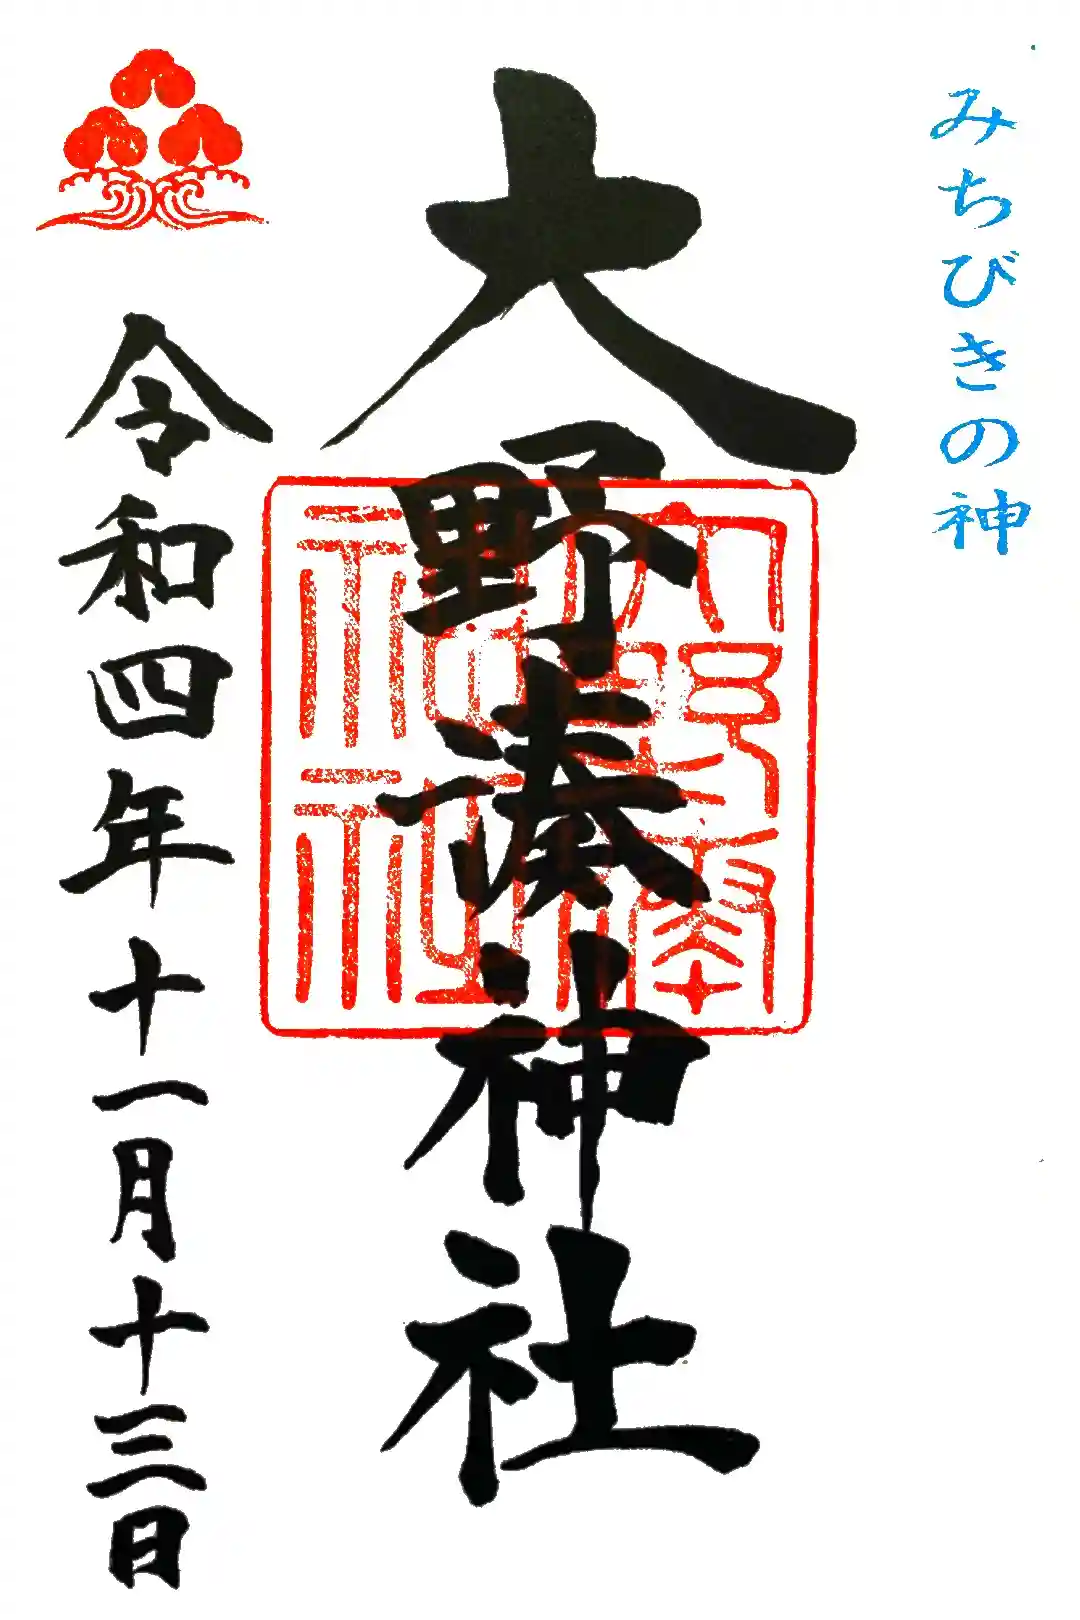 みちびきの神
大野湊神社
大野湊神社
令和四年十一月十三日